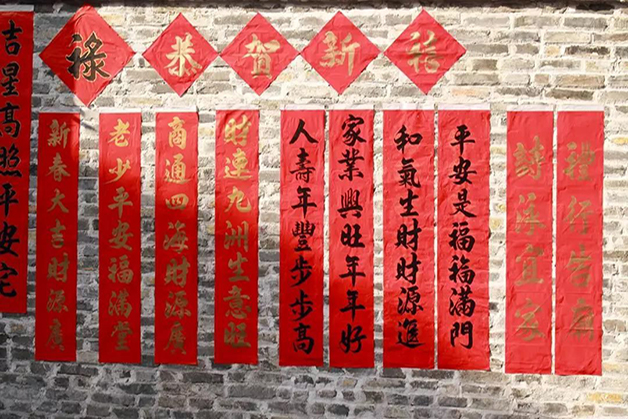 吉星高照平安宅
禄
恭賀新
新春大吉財源廣
老少平安福滿堂
商通四海財源廣
財運九洲生意旺
人壽年豐步步高
家業興旺年年好
和氣生財財源進
平安是福福滿門